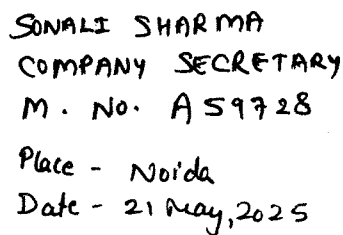 SONALI SHARMA
COMPANY SECRETARY
M. No. A59728
Place - Noida
Date - 21 May, 2025